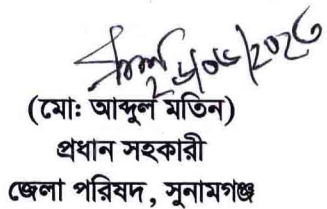 (মো: আব্দুল মতিন)
প্রধান সহকারী
জেলা পরিষদ, সুনামগঞ্জ